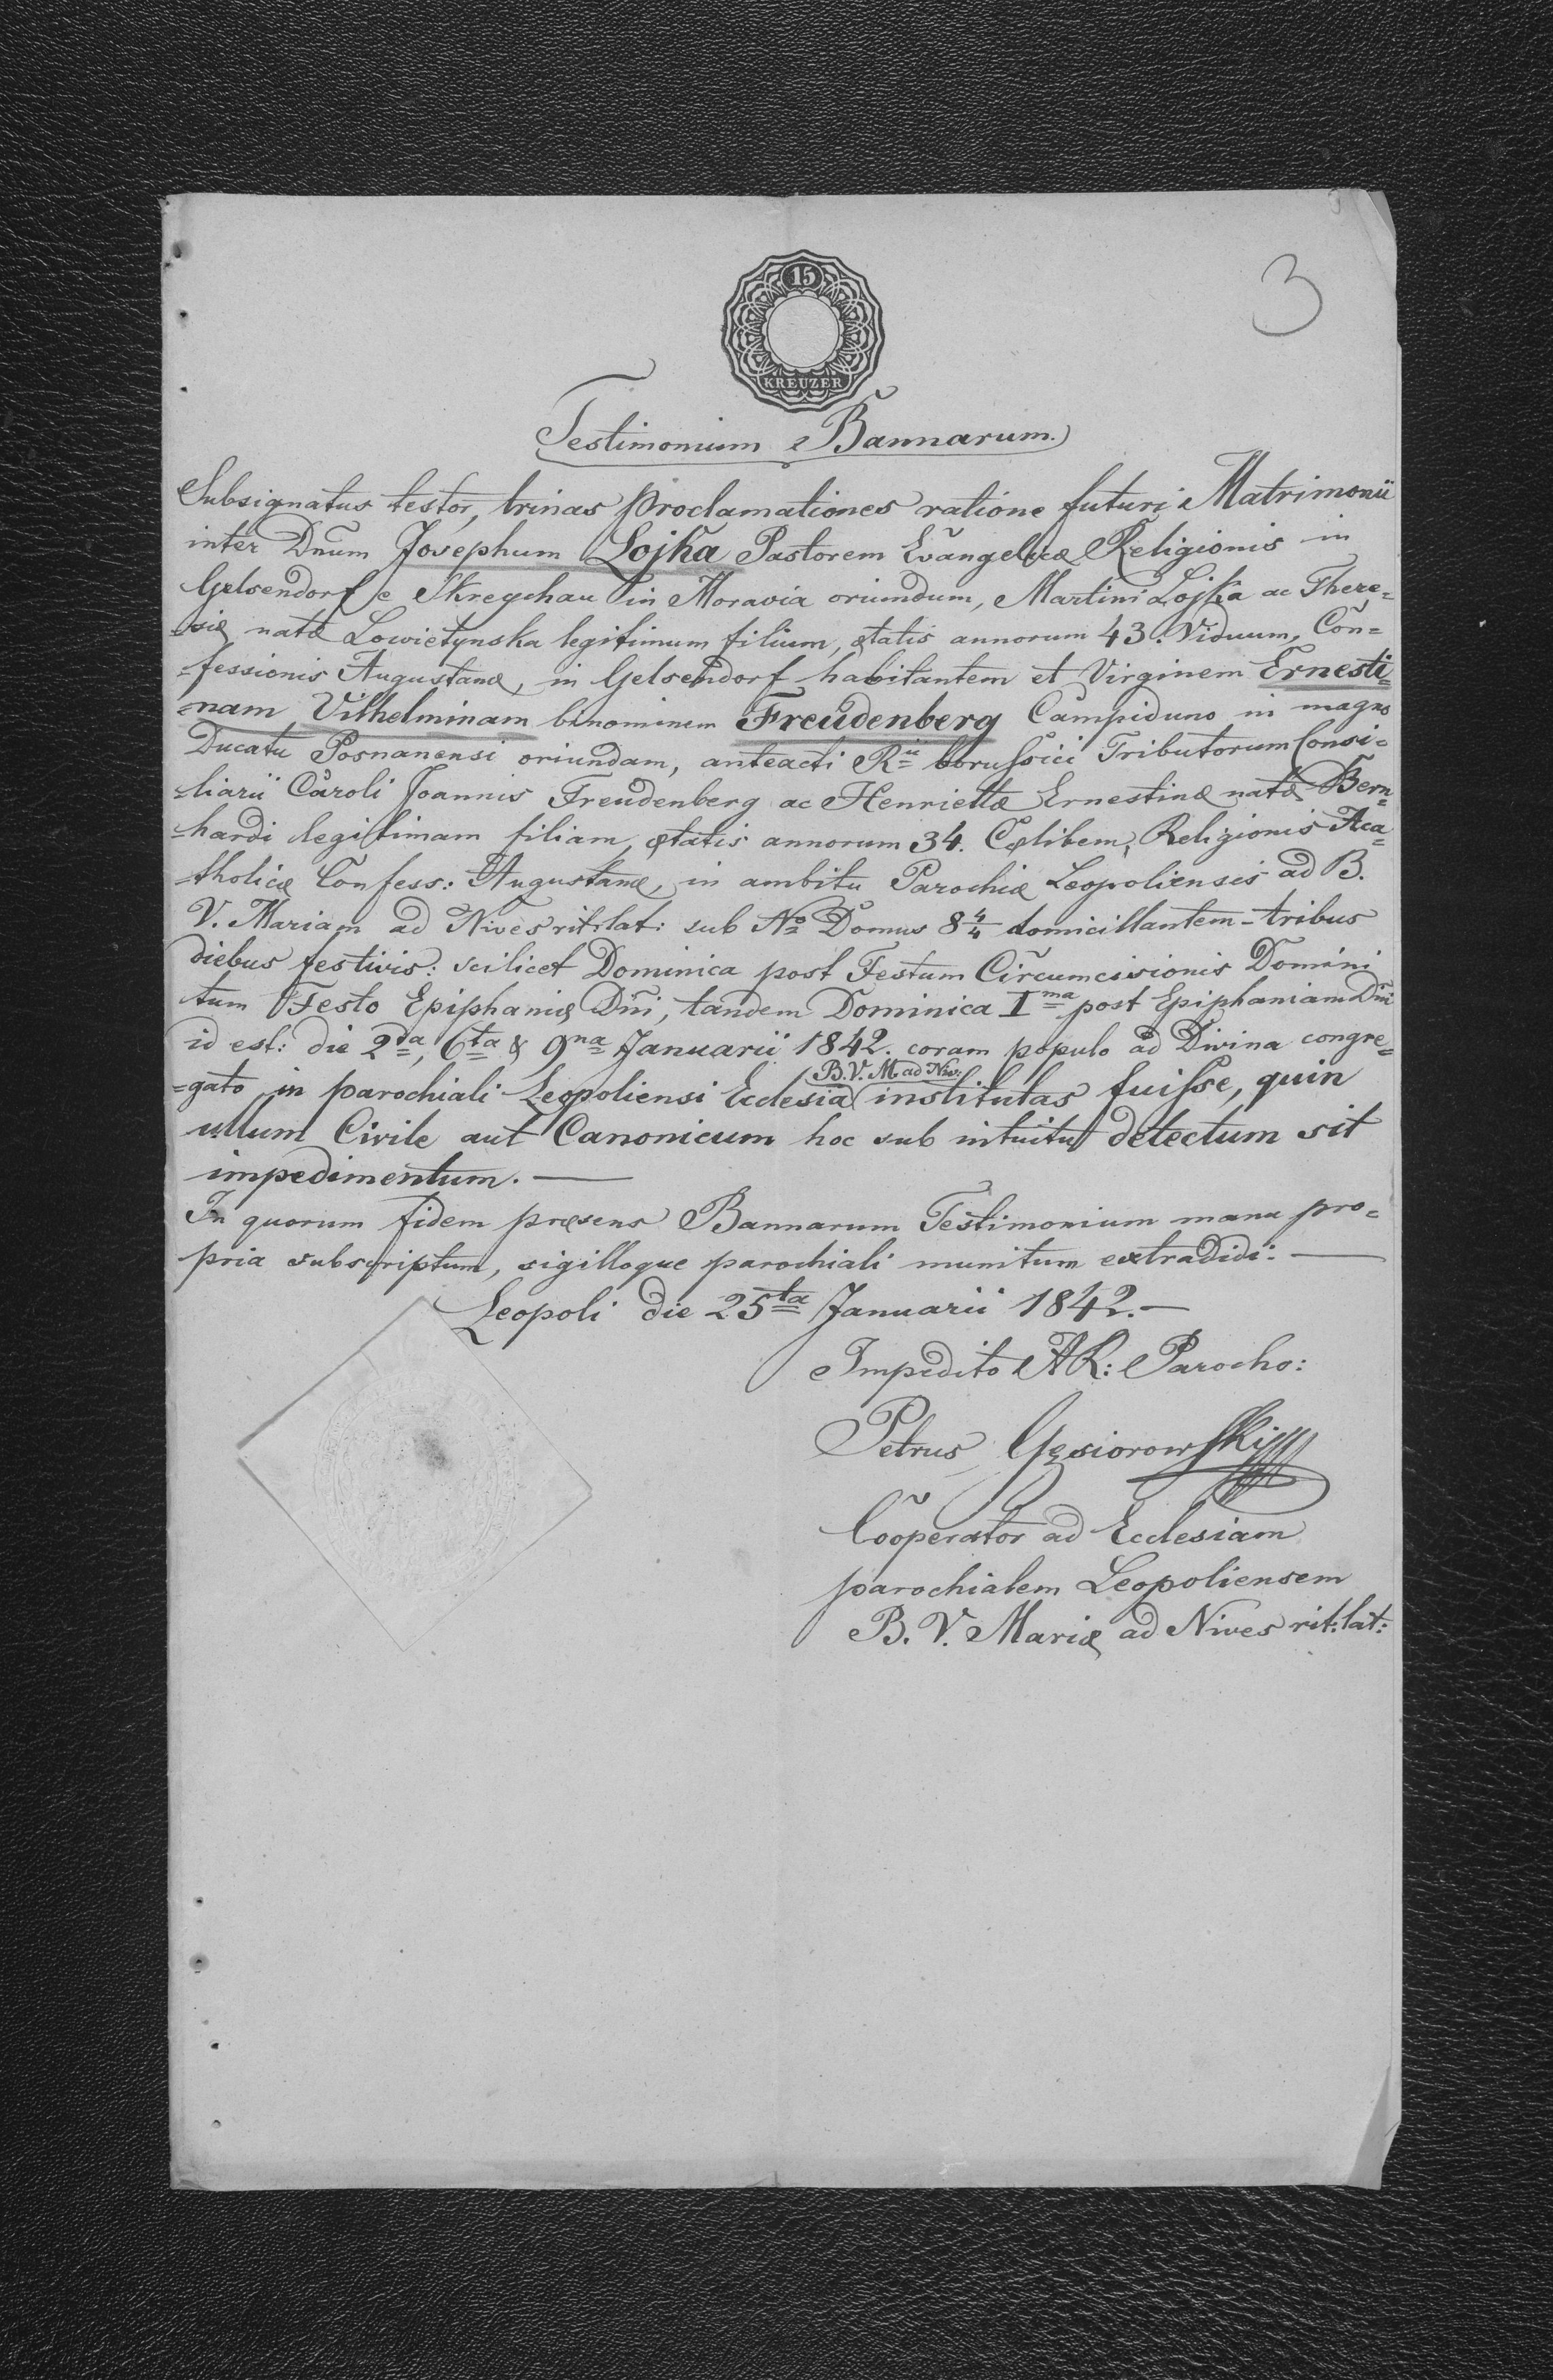 3
15
KREUZER
Testimonium Bannarum.
Subsignatus testor, trinas proclamationes ratione futuri Matrimonii
inter Dnum Josephum Lojka Pastorem Evangelicæ Religionis in
Gelsendorf e Skreychau in Moravia oriundum, Martini Lojka ac There=
=siæ natæ Lowietynska legitimum filium, ætatis annorum 43. Viduum, Con=
=fessionis Augustanæ, in Gelsendorf habitantem et Virginem Ernesti=
=nam Vilhelminam binominem Freudenberg Campiduno in magno
Ducatu Posnanensi oriundam, anteacti Rii borussici Tributorum Consi=
=liarii Caroli Joannis Freudenberg ac Henriettæ Ernestinæ natæ Bern=
=hardi legitimam filiam, ætatis annorum 34. Cælibem, Religionis Aca=
=tholicæ Confess: Augustanæ, in ambitu Parochiæ Leopoliensis ad B.
V. Mariam ad Nives rit: lat: sub No Domus 8 4/4 domicillantem - tribus
diebus festivis: scilicet Dominica post Festum Circumcisionis Domini
tum Festo Epiphaniæ Dni, tandem Dominica Ima post Epiphaniam Dni
id est: die 2da, 6ta & 9na Januarii 1842. coram populo ad Divina congre=
B.V.M ad Niv:
=gato in parochiali Leopoliensi Ecclesia institutas fuisse, quin
ullum Civile aut Canonicum hoc sub intuitu detectum sit
impedimentum. —
In quorum fidem præsens Bannarum Testimonium manu pro=
pria subscriptum, sigilloque parochiali munitum extradidi: —
Leopoli die 25ta Januarii 1842. —
Impedito AR: Parocho:
Petrus Gęsiorowski
Cooperator ad Ecclesiam
parochialem Leopoliensem
B. V. Mariæ ad Nives rit: lat: